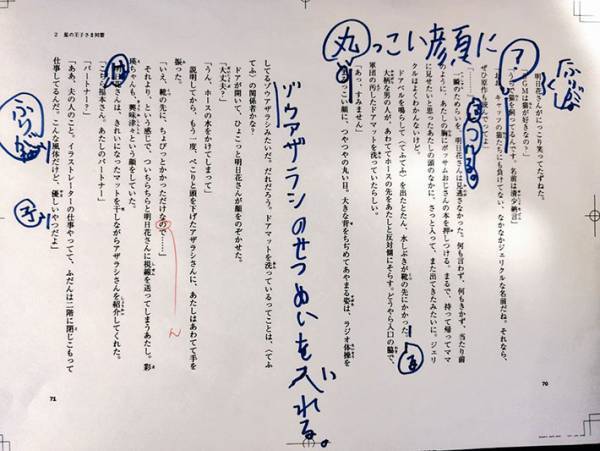 明日花さんがにっこり笑ってたずねた。
「ＢＧＭは猫が好きなの？」
「うちで猫を飼ってるんです。名前は清少納言」
「おお、キャッツの猫たちにも負けてない、なかなかジェリクルな名前だね。それなら、
ぜひ原作も
一瞬のためらいを、明日花さんは見逃さなかった。何も言わず、何もきかず、当たり前
のように、あたしの胸にポッサムおじさんの本を押しつける。まるで、持って帰ってママ
に見せたいと思ったあたしの頭のなかに、さっと入って、また出てきたみたいに。ジェリ
クルはよくわかんないけど。
ドアベルを鳴らして〈てふてふ〉を出たとたん、水しぶきが靴の先にかかった。
大柄な男の人が、あわててホースの先をあたしと反対側にそらす。どうやら入口の脇で、
軍団の汚したドアマットを洗っていたらしい。
「あっ、すみません」
っこい顔に、つやつやの丸い目。大きな背をちぢめてあやまる姿は、ラジオ体操を
してるゾウアザラシみたいだ。だれだろう。ドアマットを洗っているってことは、〈てふ
てふ〉の関係者かな？
「大丈夫？」
ドアが開いて、ひょこっと明日花さんが顔をのぞかせた。
「うん、ホースの水をかけてしまって」
説明してから、もう一度、ぺこりと頭を下げたアザラシさんに、あたしはあわてて手を
振った。
「いえ、靴の先に、ちょびっとかかっただけなので……」
それより、という感じで、ついちらちらと明日花さんに視線を送ってしまうあたし。彩
瑛ちゃんも、興味津々という顔をしていた。
明日花さんは、きれいになったマットを干しながらアザラシさんを紹介してくれた。
「こちら福本さん。あたしのパートナー」
「パートナー？」
「ああ、夫の人のこと。イラストレーターの仕事やってて、ふだんは二階に閉じこもって
仕事してるんだ。こんな風体だけど、優しいやつだよ」
70
2 星の王子さま同盟
71
？
丸っこい顔に
ゾウアザラシのせつめいを入れる。
い
ん